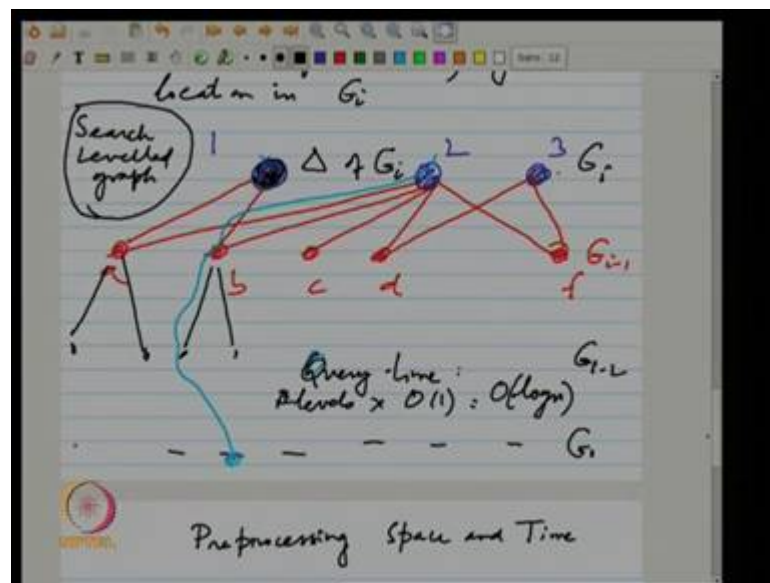 location in Gi
Search
Levelled
graph
1 Δ of Gi 2 3 Gi
b c d f Gi-1
Query time :
# levels x O(1) : O(logn)
Gi-2
G0
Preprocessing Space and Time